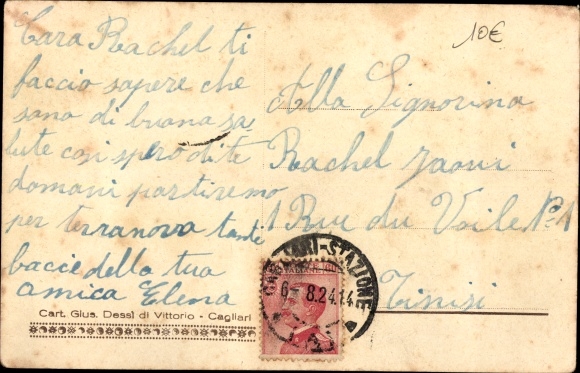 Cara Rachel ti
faccio sapere che
sono di buona sa-
lute cosi spero di te
domani partiremo
per terranova tanti
bacci della tua
amica Elena
Cart. Gius. Dessì di Vittorio - Cagliari
10€
Alla Signorina
Rachel Jaoui
1 Rue du Voile N°1
Tinisi
CAGLIARI-STAZIONE
6- 8.24.14